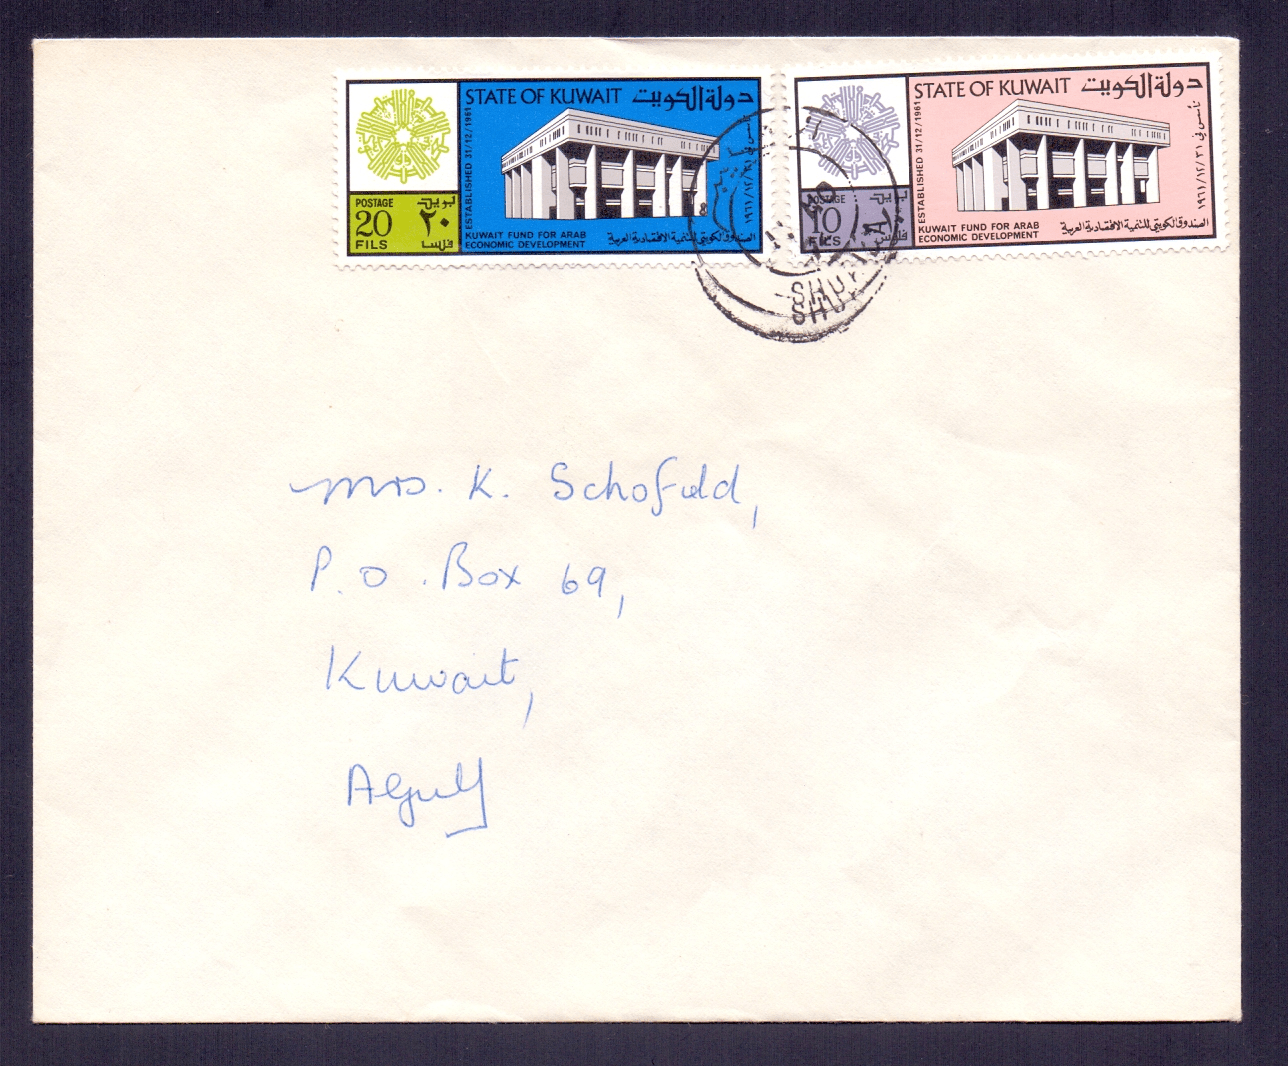 STATE OF KUWAIT دولة الكويت
ESTABLISHED 31/12/1961
POSTAGE بريد
20 ٢٠
FILS فلسا
KUWAIT FUND FOR ARAB
ECONOMIC DEVELOPMENT
الصندوق الكويتي للتنمية الاقتصادية العربية
STATE OF KUWAIT دولة الكويت
ESTABLISHED 31/12/1961
تأسس في ١٩٦١/١٢/٣١
POSTAGE بريد
10
FILS فلوس
KUWAIT FUND FOR ARAB
ECONOMIC DEVELOPMENT
الصندوق الكويتي للتنمية الاقتصادية العربية
Mrs. K. Schofield,
P.O. Box 69,
Kuwait,
AGulf